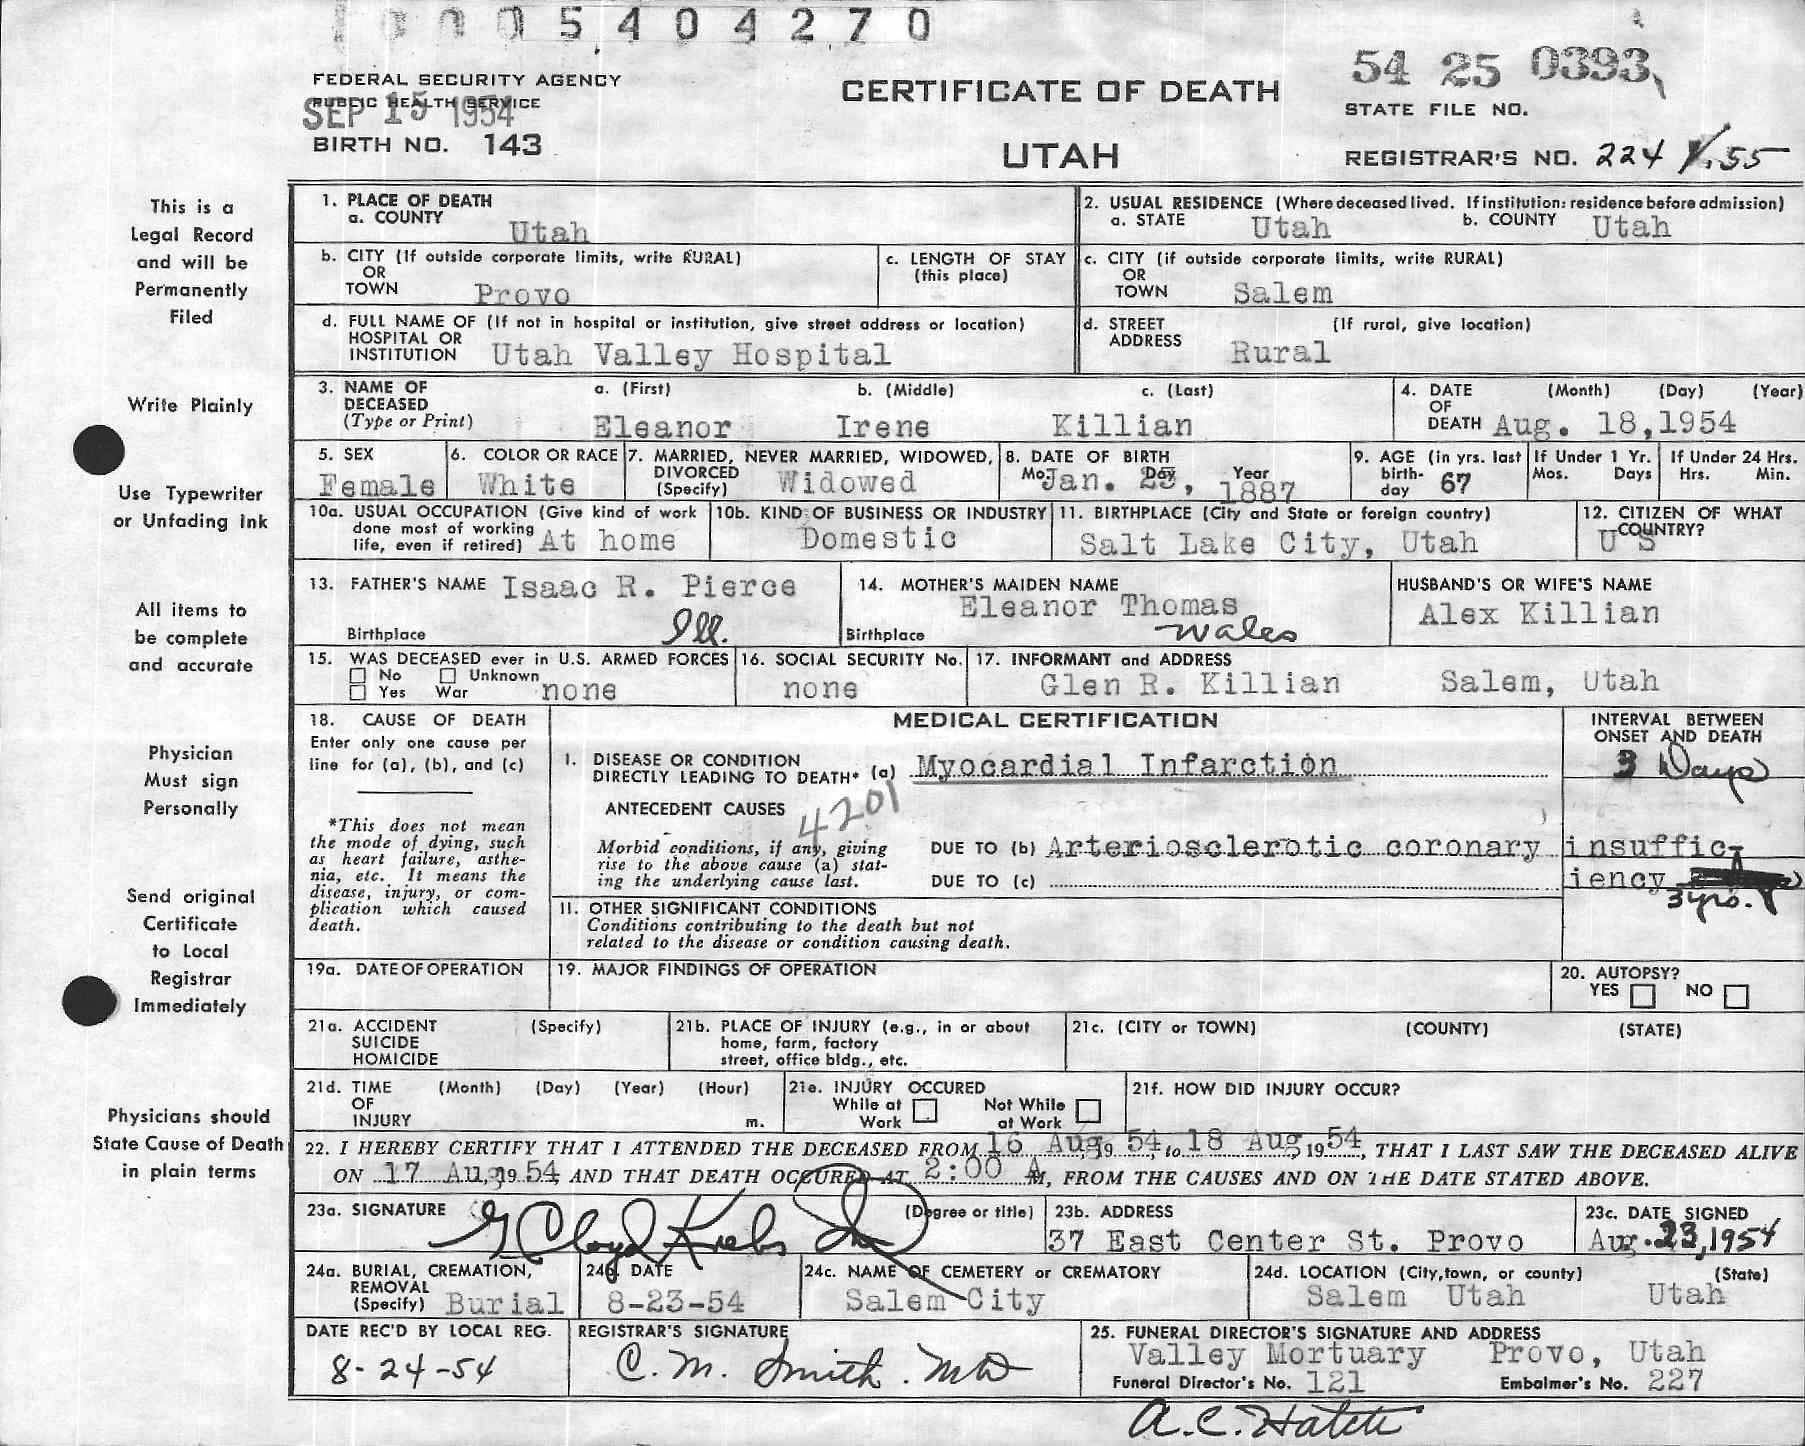 10005404270
FEDERAL SECURITY AGENCY
PUBLIC HEALTH SERVICE
SEP 15 1954
BIRTH NO. 143
CERTIFICATE OF DEATH
UTAH
54 25 0393
STATE FILE NO.
REGISTRAR'S NO. 224
This is a
Legal Record
and will be
Permanently
Filed
Write Plainly
Use Typewriter
or Unfading Ink
All items to
be complete
and accurate
Physician
Must sign
Personally
Send original
Certificate
to Local
Registrar
Immediately
Physicians should
State Cause of Death
in plain terms
1. PLACE OF DEATH
a. COUNTY Utah
2. USUAL RESIDENCE (Where deceased lived. If institution: residence before admission)
a. STATE Utah b. COUNTY Utah
b. CITY (If outside corporate limits, write RURAL)
OR
TOWN Provo
c. LENGTH OF STAY
(this place)
c. CITY (if outside corporate limits, write RURAL)
OR
TOWN Salem
d. FULL NAME OF (If not in hospital or institution, give street address or location)
HOSPITAL OR
INSTITUTION Utah Valley Hospital
d. STREET (If rural, give location)
ADDRESS Rural
3. NAME OF a. (First) b. (Middle) c. (Last)
DECEASED
(Type or Print) Eleanor Irene Killian
4. DATE (Month) (Day) (Year)
OF
DEATH Aug. 18,1954
5. SEX
Female
6. COLOR OR RACE
White
7. MARRIED, NEVER MARRIED, WIDOWED,
DIVORCED
(Specify) Widowed
8. DATE OF BIRTH
Mo. Day Year
Jan. 1887
9. AGE (in yrs. last
birth-
day 67
If Under 1 Yr.
Mos. Days
If Under 24 Hrs.
Hrs. Min.
10a. USUAL OCCUPATION (Give kind of work
done most of working
life, even if retired) At home
10b. KIND OF BUSINESS OR INDUSTRY
Domestic
11. BIRTHPLACE (City and State or foreign country)
Salt Lake City, Utah
12. CITIZEN OF WHAT
COUNTRY?
U S
13. FATHER'S NAME Isaac R. Pierce
Birthplace Ill.
14. MOTHER'S MAIDEN NAME
Eleanor Thomas
Birthplace Wales
HUSBAND'S OR WIFE'S NAME
Alex Killian
15. WAS DECEASED ever in U.S. ARMED FORCES
No Unknown
Yes War none
16. SOCIAL SECURITY No.
none
17. INFORMANT and ADDRESS
Glen R. Killian Salem, Utah
18. CAUSE OF DEATH
Enter only one cause per
line for (a), (b), and (c)
*This does not mean
the mode of dying, such
as heart failure, asthe-
nia, etc. It means the
disease, injury, or com-
plication which caused
death.
MEDICAL CERTIFICATION
INTERVAL BETWEEN
ONSET AND DEATH
I. DISEASE OR CONDITION
DIRECTLY LEADING TO DEATH* (a) Myocardial Infarction 3 Days
ANTECEDENT CAUSES
4201
Morbid conditions, if any, giving
rise to the above cause (a) stat-
ing the underlying cause last.
DUE TO (b) Arteriosclerotic coronary insuffic-
DUE TO (c) iency
3 yrs.
II. OTHER SIGNIFICANT CONDITIONS
Conditions contributing to the death but not
related to the disease or condition causing death.
19a. DATE OF OPERATION
19. MAJOR FINDINGS OF OPERATION
20. AUTOPSY?
YES NO
21a. ACCIDENT (Specify)
SUICIDE
HOMICIDE
21b. PLACE OF INJURY (e.g., in or about
home, farm, factory
street, office bldg., etc.
21c. (CITY or TOWN) (COUNTY) (STATE)
21d. TIME (Month) (Day) (Year) (Hour)
OF
INJURY m.
21e. INJURY OCCURED
While at Not While
Work at Work
21f. HOW DID INJURY OCCUR?
22. I HEREBY CERTIFY THAT I ATTENDED THE DECEASED FROM 16 Aug 19 54 to 18 Aug 19 54, THAT I LAST SAW THE DECEASED ALIVE
ON 17 Aug, 19 54 AND THAT DEATH OCCURED AT 2:00 A M, FROM THE CAUSES AND ON THE DATE STATED ABOVE.
23a. SIGNATURE (Degree or title)
G Cloyd Krebs MD
23b. ADDRESS
37 East Center St. Provo
23c. DATE SIGNED
Aug. 23, 1954
24a. BURIAL, CREMATION,
REMOVAL
(Specify) Burial
24b. DATE
8-23-54
24c. NAME OF CEMETERY or CREMATORY
Salem City
24d. LOCATION (City, town, or county) (State)
Salem Utah Utah
DATE REC'D BY LOCAL REG.
8-24-54
REGISTRAR'S SIGNATURE
C. M. Smith. MD
25. FUNERAL DIRECTOR'S SIGNATURE AND ADDRESS
Valley Mortuary Provo, Utah
Funeral Director's No. 121 Embalmer's No. 227